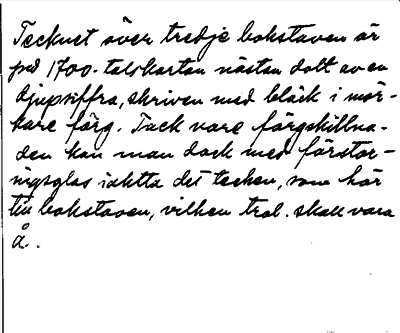 Tecknet över tredje bokstaven är
på 1700-talskartan nästan dolt av en
djupsiffra, skriven med bläck i mör-
kare färg. Tack vare färgskillna-
den kan man dock med förstor-
ingsglas iaktta det tecken, som hör
till bokstaven, vilken trol. skall vara
å.